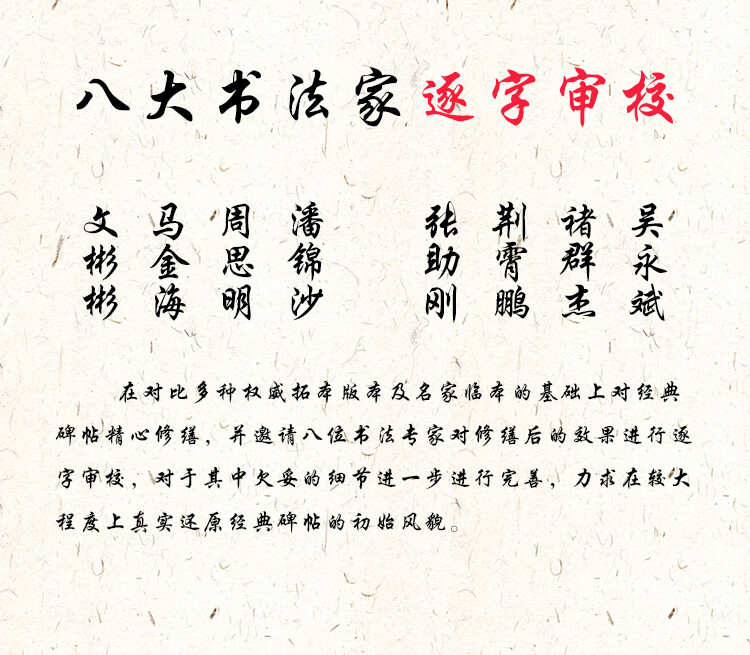 八大书法家逐字审校
文彬彬
马金海
周思明
潘锦沙
张助刚
荆霄鹏
褚群杰
吴永斌
在对比多种权威拓本版本及名家临本的基础上对经典
碑帖精心修缮，并邀请八位书法专家对修缮后的效果进行逐
字审校，对于其中欠妥的细节进一步进行完善，力求在较大
程度上真实还原经典碑帖的初始风貌。